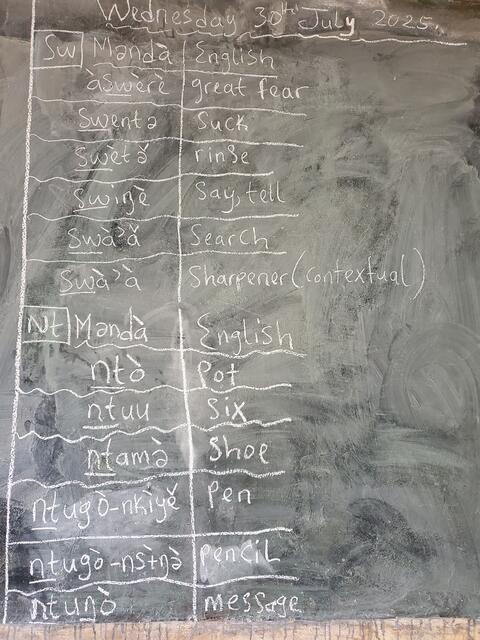 Wednesday 30th July 2025.
Sw Məndà English
àswèrè great fear
Swentə Suck
Swètə̌ rinse
Swiŋè Say, tell
Swà'ǎ Search
Swà'à Sharpener (contextual)
Nt Məndà English
ntò Pot
ntuu Six
ntamə̀ Shoe
ntugò-nkìyə̌ Pen
ntugò-nsɨ̀ŋə̀ pencil
ntuŋò message